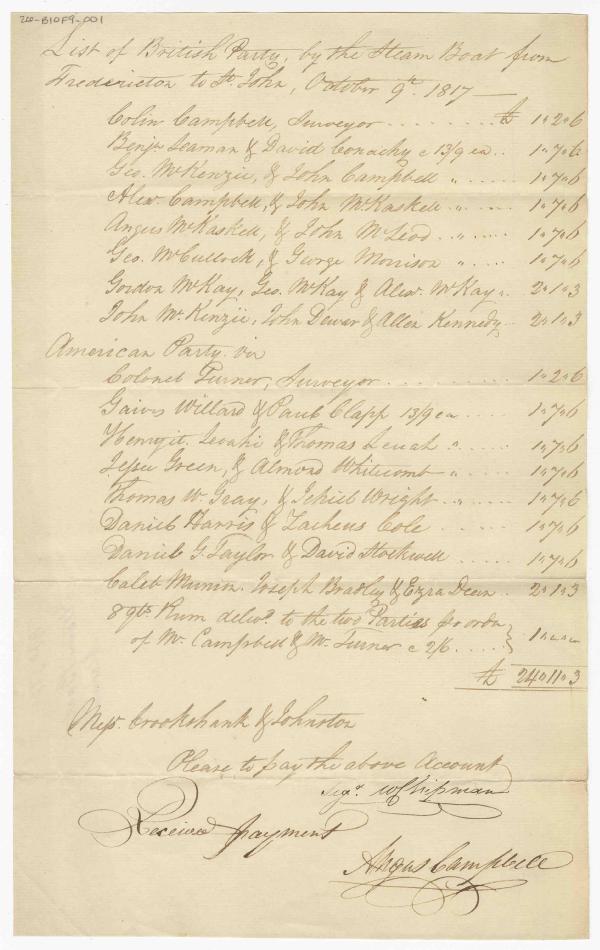 26-B10F9-001
List of British Party, by the Steam Boat from
Fredericton to St. John, October 9th 1817 —
Colin Campbell, Surveyor . . . . . . . . . £ 1"2"6
Benjn Seaman & David Conachy @ 13/9 ea . . 1"7"6
Geo. McKenzie, & John Campbell " . . . . 1"7"6
Alexr. Campbell, & John McKaskell " . . . 1"7"6
Angus McKaskell, & John McLeod . . " . . . . 1"7"6
Geo. McCullock, & George Morrison " . . . . 1"7"6
Gordon McKay, Geo. McKay & Alexr. McKay ". 2"1"3
John McKenzie, John Dewar & Allen Kennedy . . 2"1"3
American Party viz
Colonel Turner, Surveyor . . . . . . . . . . 1"2"6
Willard & Paul Clapp 13/9 ea . . . . 1"7"6
& Thomas " . . . . 1"7"6
Jesse Green, & Almond Whitcomb " . . . . 1"7"6
Thomas W. Gray, & Jehiel Wright . . " . . . . 1"7"6
Daniel Harris & Zacheus Cole . . . . . . 1"7"6
Daniel G. Taylor & David Stockwell . . . . . 1"7"6
Caleb Munson. Joseph Bradley & Ezra Dean . 2"1"3
8 qts. Rum delivd. to the two Parties pr order
of Mr. Campbell & Mr. Turner @ 2/6 . . . . } 1"""
£ 24"11"3
Messrs. Crookshank & Johnston
Please to pay the above Account
Sigd. W Chipman
Received payment
Angus Campbell